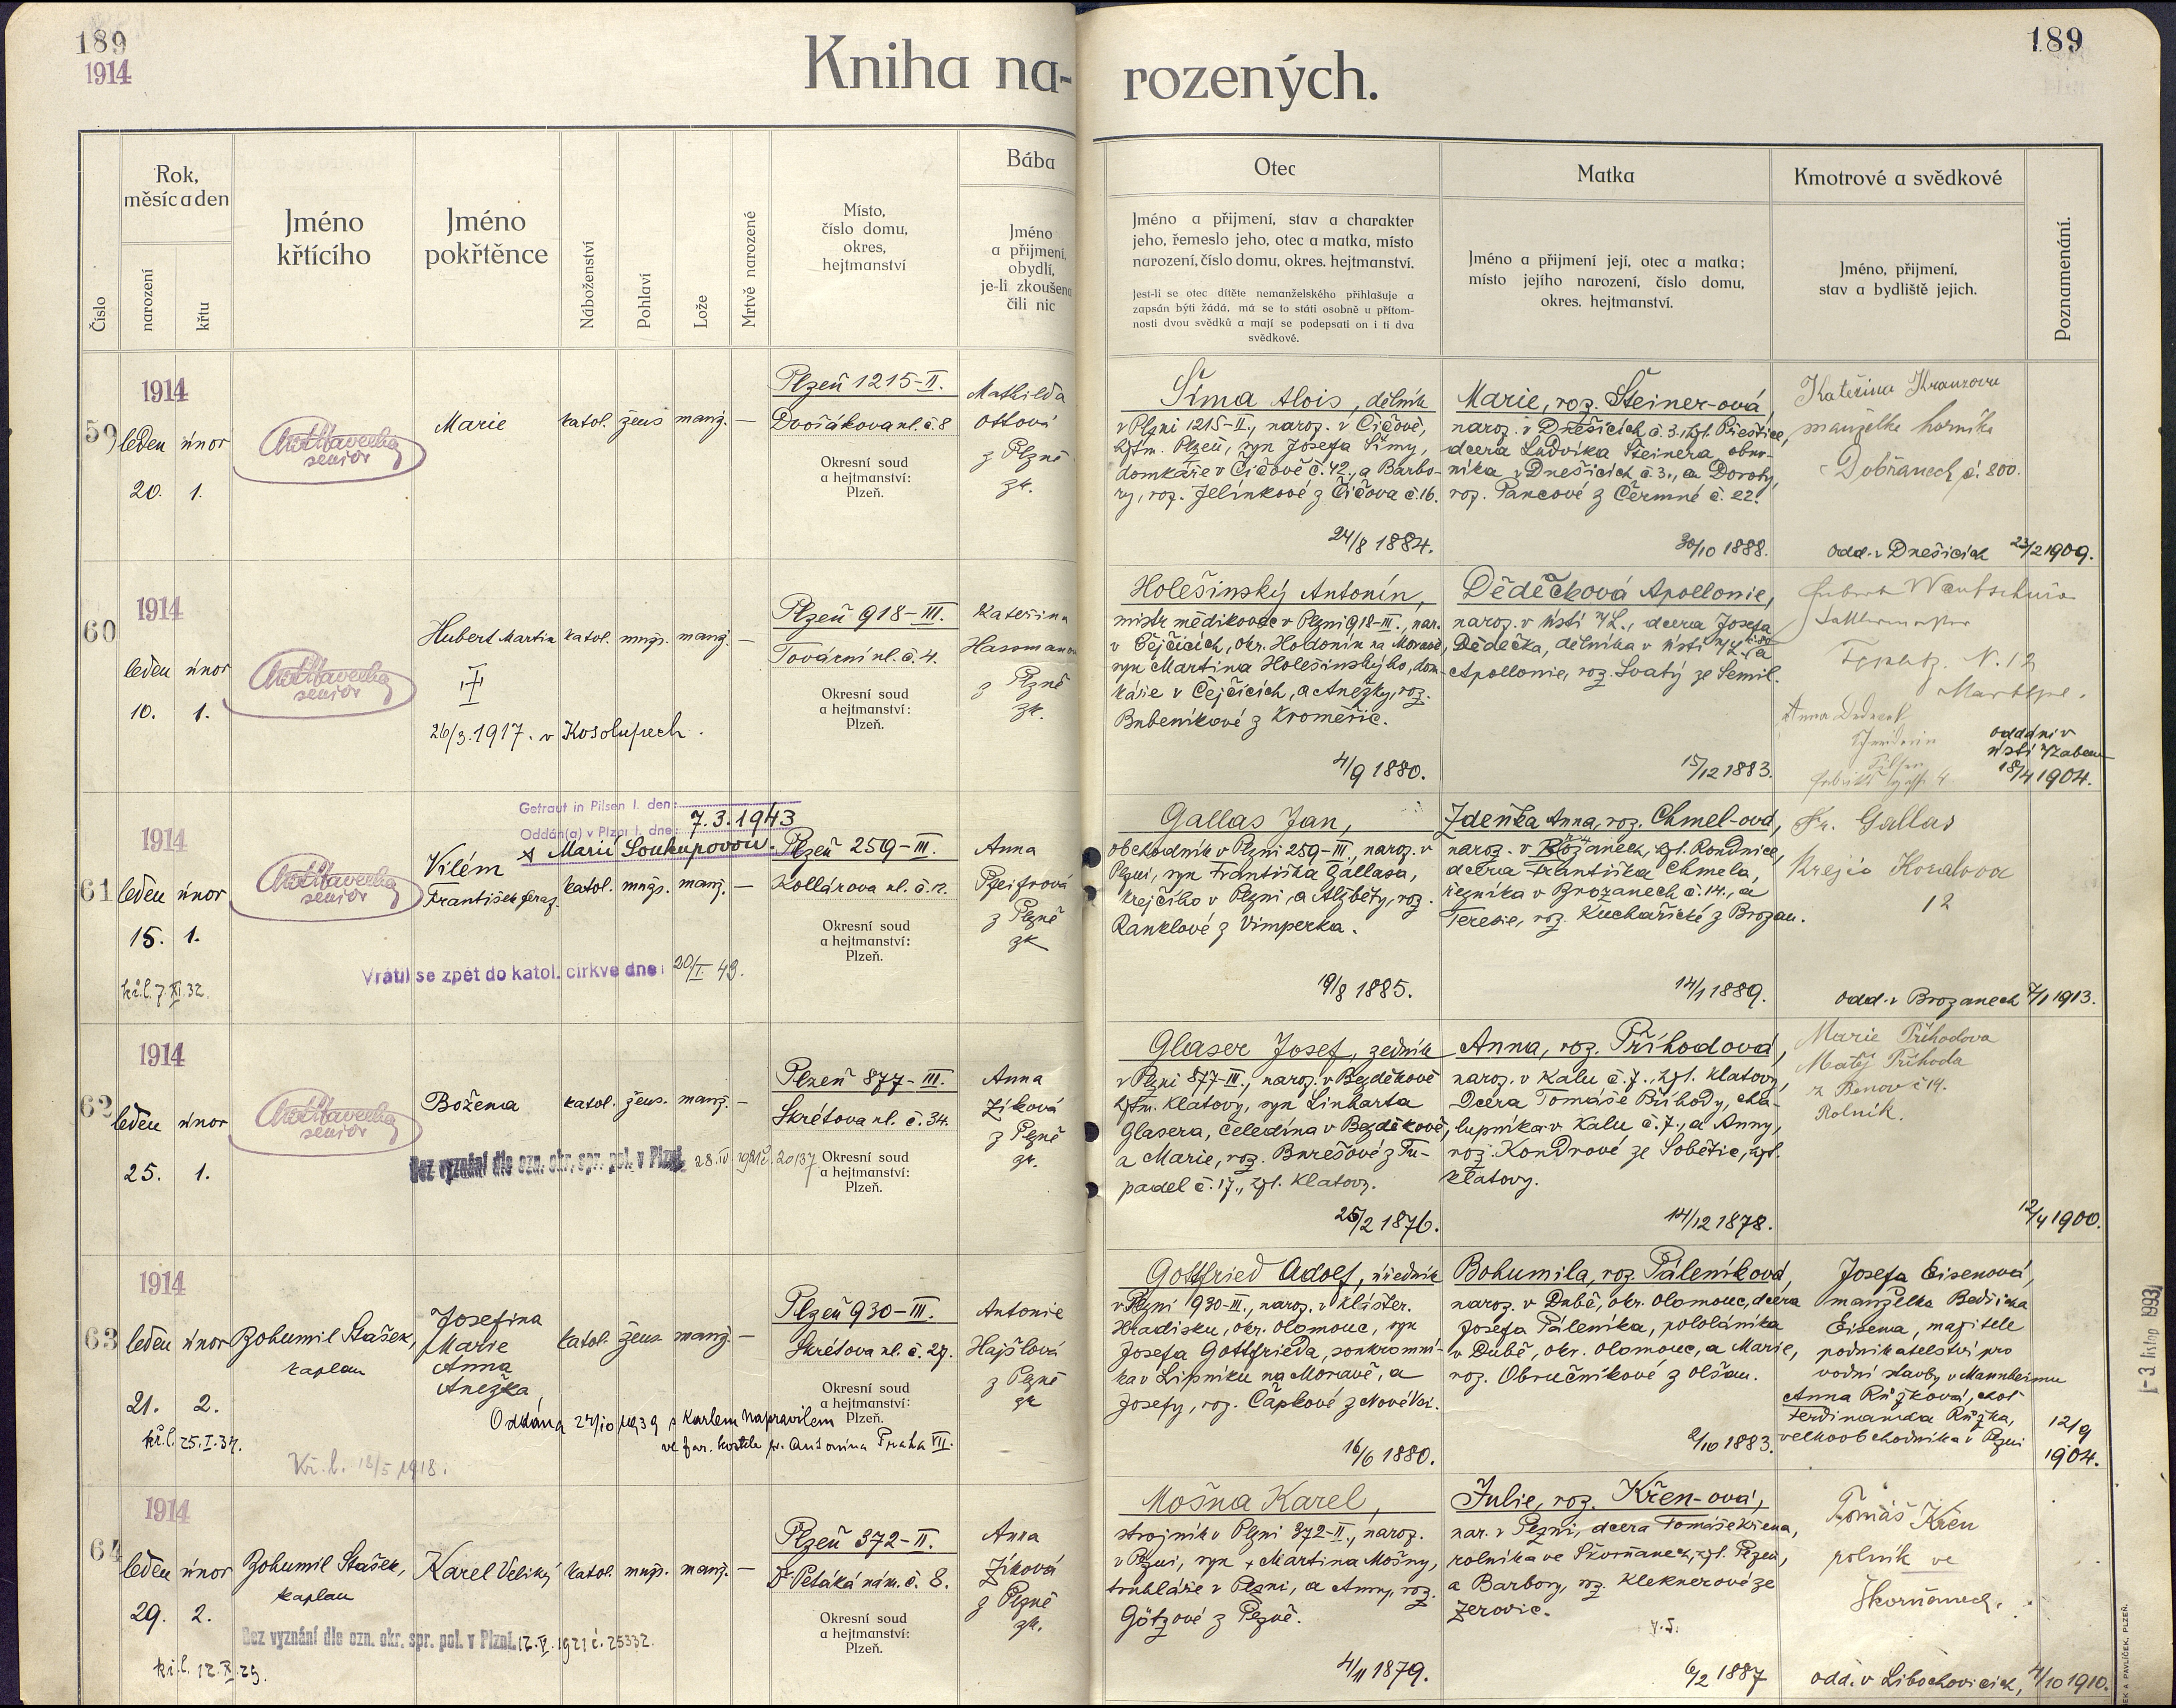 189
1914
Kniha na-
rozených.
189
Číslo
Rok,
měsíc a den
narození
křtu
Jméno
křtícího
Jméno
pokřtěnce
Náboženství
Pohlaví
Lože
Mrtvě narozené
Místo,
číslo domu,
okres,
hejtmanství
Bába
Jméno
a přijmení,
obydlí,
je-li zkoušena
čili nic
Otec
Jméno a přijmení, stav a charakter
jeho, řemeslo jeho, otec a matka, místo
narození, číslo domu, okres. hejtmanství.
Jest-li se otec dítěte nemanželského přihlašuje a
zapsán býti žádá, má se to státi osobně u přítom-
nosti dvou svědků a mají se podepsati on i ti dva
svědkové.
Matka
Jméno a přijmení její, otec a matka;
místo jejího narození, číslo domu,
okres. hejtmanství.
Kmotrové a svědkové
Jméno, přijmení,
stav a bydliště jejich.
Poznamenání.
1914
59
leden únor
20. 1.
senior
Marie
katol. žens manž. —
Plzeň 1215-II.
Dvořákova ul. č. 8
Okresní soud
a hejtmanství:
Plzeň.
Mathilda
Ottová
z Plzně
zk.
Šíma Alois, dělník
v Plzni 1215-II., naroz. v Čičově,
hejtm. Plzeň, syn Josefa Šímy,
domkáře v Čičově č. 42., a Barbo-
ry, roz. Jelínkové z Čičova č. 16.
24/8 1884.
Marie, roz. Steiner-ová,
naroz. v Dnešicích č. 3. hejt. Přeštice,
dcera Ludvíka Steinera obuv-
níka v Dnešicích č. 3., a Doroty,
roz. Pancové z Čermné č. 22.
30/10 1888.
Kateřina Kranzova
manželka horníka
v Dobřanech č. 200.
odd. v Dnešicích 23/2 1909.
1914
60
leden únor
10. 1.
senior
Hubert Martin
katol. mužs. manž. —
26/3. 1917. v Kosolupech.
Plzeň 918-III.
Tovární ul. č. 4.
Okresní soud
a hejtmanství:
Plzeň.
Kateřina
z Plzně
zk.
Holešinský Antonín,
mistr mědikovec v Plzni 918-III., nar.
v Čejčicích, okr. Hodonín na Moravě,
syn Martina Holešinského, dom-
káře v Čejčicích, a Anežky, roz.
Bubeníkové z Kroměříc.
4/9 1880.
Dědečková Apollonie,
naroz. v Ústí n/L., dcera Josefa
Dědečka, dělníka v Ústí n/L. a
Apollonie, roz. Svatý ze Semil.
15/12 1883.
N. 12
oddáni v
Ústí n/Labem
18/4 1904.
1914
61
leden únor
15. 1.
kř. l. 7. XI. 32.
senior
Getraut in Pilsen I. den:
Oddán(a) v Plzni I. dne:
7. 3. 1943
s Marií Soukupovou.
Vilém
František
katol. mužs. manž. —
Vrátil se zpět do katol. církve dne: 20/I. 43.
Plzeň 259-III.
Kollárova ul. č. 12.
Okresní soud
a hejtmanství:
Plzeň.
Anna
Pfeifrová
z Plzně
zk
Gallas Jan,
obchodník v Plzni 259-III., naroz. v
Plzni, syn Františka Gallasa,
krejčího v Plzni, a Alžběty, roz.
Ranklové z Vimperka.
19/8 1885.
Zdeňka Anna, roz. Chmel-ová,
naroz. v Brožanech, hejt. Roudnice,
dcera Františka Chmela,
řezníka v Brozanech č. 14., a
Terezie, roz. Kuchařické z Brozan.
14/1 1889.
Fr. Gallas
Krejčí
12
odd. v Brozanech 7/1 1913.
1914
62
leden únor
25. 1.
senior
Božena
katol. žens. manž. —
Bez vyznání dle ozn. okr. spr. pol. v Plzni
Plzeň 877-III.
Skrétova ul. č. 34.
Okresní soud
a hejtmanství:
Plzeň.
Anna
Zíková
z Plzně
zk.
Glaser Josef, zedník
v Plzni 877-III., naroz. v Bezděkově
hejtm. Klatovy, syn Linharta
Glasera, čeledína v Bezděkově,
a Marie, roz. Burešové z Tu-
padel č. 17., hejt. Klatovy.
25/2 1876.
Anna, roz. Příhodová,
naroz. v Kalu č. 7., hejt. Klatovy,
dcera Tomáše Příhody, cha-
lupníka v Kalu č. 7., a Anny,
roz. Kondrové ze Sobětic, hejt.
Klatovy.
14/12 1878.
Marie Příhodova
Matěj Příhoda
z Benov č 14.
Rolník.
12/4 1900.
1914
63
leden únor
21. 2.
kř. l. 25. I. 37.
Kř. l. 18/5 1918.
Bohumil Stašek,
kaplan
Josefina
Marie
Anna
Anežka,
katol. žens. manž. —
Oddána 24/10 1939 s Karlem Napravilem
ve far. kostele sv. Antonína Praha VII.
Plzeň 930-III.
Skrétova ul. č. 27.
Okresní soud
a hejtmanství:
Plzeň.
Antonie
Hajšlová
z Plzně
zk
Gottfried Adolf, úředník
v Plzni 930-III., naroz. v Klášter.
Hradisku, okr. Olomouc, syn
Josefa Gottfrieda, soukromní-
ka v Lipníku na Moravě, a
Josefy, roz. Čapkové z Nové Vsi.
16/6 1880.
Bohumila, roz. Páleníková,
naroz. v Dubě, okr. Olomouc, dcera
Josefa Páleníka, pololáníka
v Dubě, okr. Olomouc, a Marie,
roz. Obručníkové z Olšan.
2/10 1883.
Josefa Eisenová,
manželka Bedřicha
Eisena, majitele
podnikatelství pro
vodní stavby v Mannheimu
Anna Růžková, choť
Ferdinanda Růžka,
velkoobchodníka v Plzni
12/9
1904.
1914
64
leden únor
29. 2.
kř. l. 12. X. 25.
Bohumil Stašek,
kaplan
Karel Veliký
katol. mužs. manž. —
Bez vyznání dle ozn. okr. spr. pol. v Plzni. 12. V. 1921 č. 25332.
Plzeň 372-II.
Dr. Petáká nám. č. 8.
Okresní soud
a hejtmanství:
Plzeň.
Anna
Zíková
z Plzně
zk.
Mošna Karel,
strojník v Plzni 372-II., naroz.
v Plzni, syn + Martina Mošny,
truhláře v Plzni, a Anny, roz.
Götzové z Plzně.
4/11 1879.
Julie, roz. Křen-ová,
nar. v Plzni, dcera Tomáše Křena,
rolníka ve Škvrňanech, hejt. Plzeň,
a Barbory, roz. Kleknerové ze
Zerovic.
6/2 1887
Tomáš Křen
rolník ve
Škvrňanech.
odd. v Libochovicích, 4/10 1910.
1-3. listop 1993